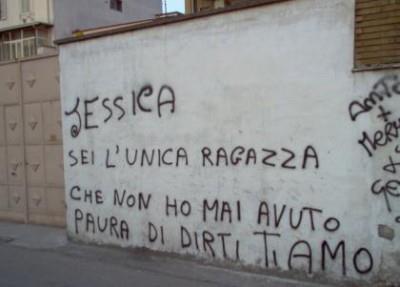 JESSICA
SEI L'UNICA RAGAZZA
CHE NON HO MAI AVUTO
PAURA DI DIRTI TI AMO